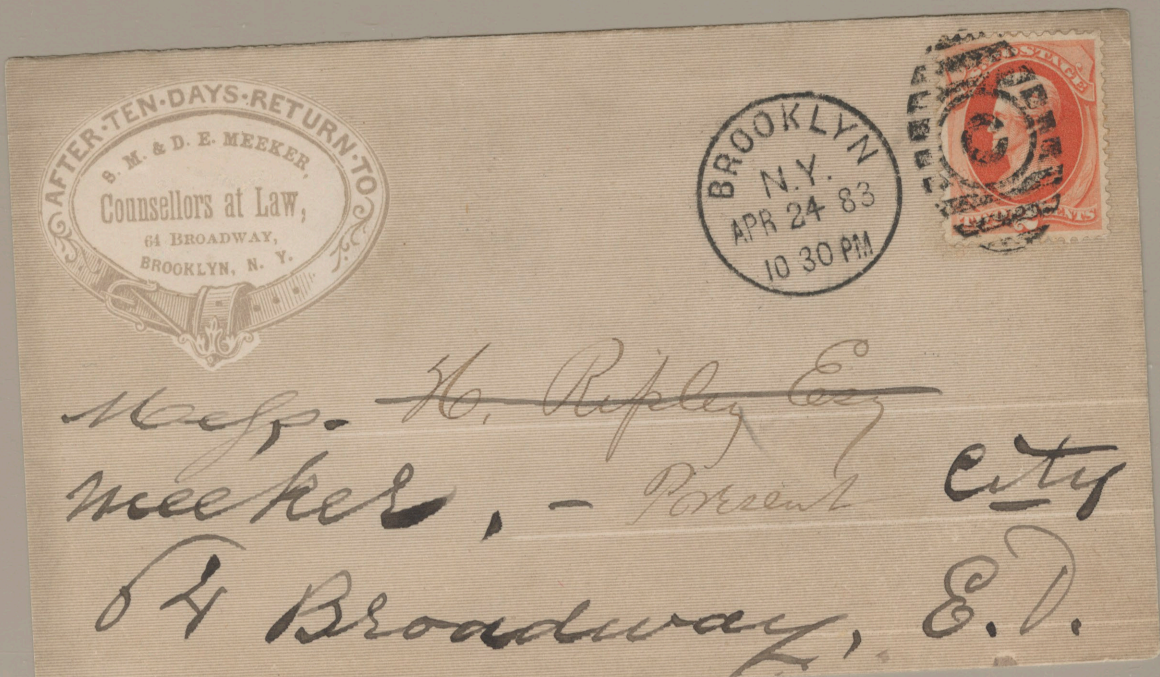 AFTER·TEN·DAYS·RETURN·TO
S. M. & D. E. MEEKER,
Counsellors at Law,
64 BROADWAY,
BROOKLYN, N. Y.
BROOKLYN
N.Y.
APR 24 83
10 30 PM
POSTAGE
C
CENTS
H. Ripley Esq
Mess.
Meeker, - Present City
64 Broadway, E. D.